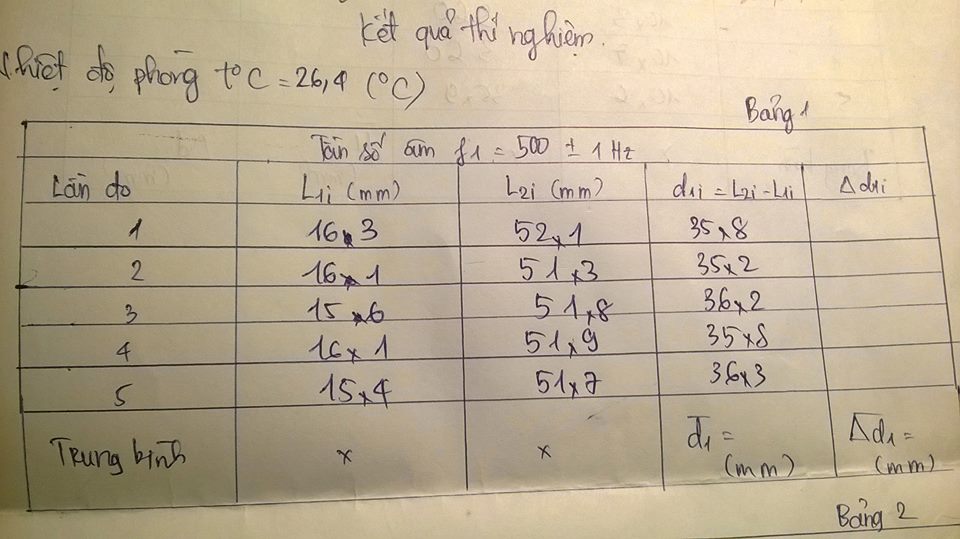 Kết quả thí nghiệm.
Nhiệt độ phòng t°C = 26,4 (°C)
Bảng 1
Tần số âm f1 = 500 ± 1 Hz
Lần đo L1i (mm) L2i (mm) d1i = L2i - L1i Δd1i
1 16x3 52x1 35x8
2 16x1 51x3 35x2
3 15x6 51x8 36x2
4 16x1 51x9 35x8
5 15x4 51x7 36x3
Trung bình x x d̅1 = (mm) Δ̅d1 = (mm)
Bảng 2